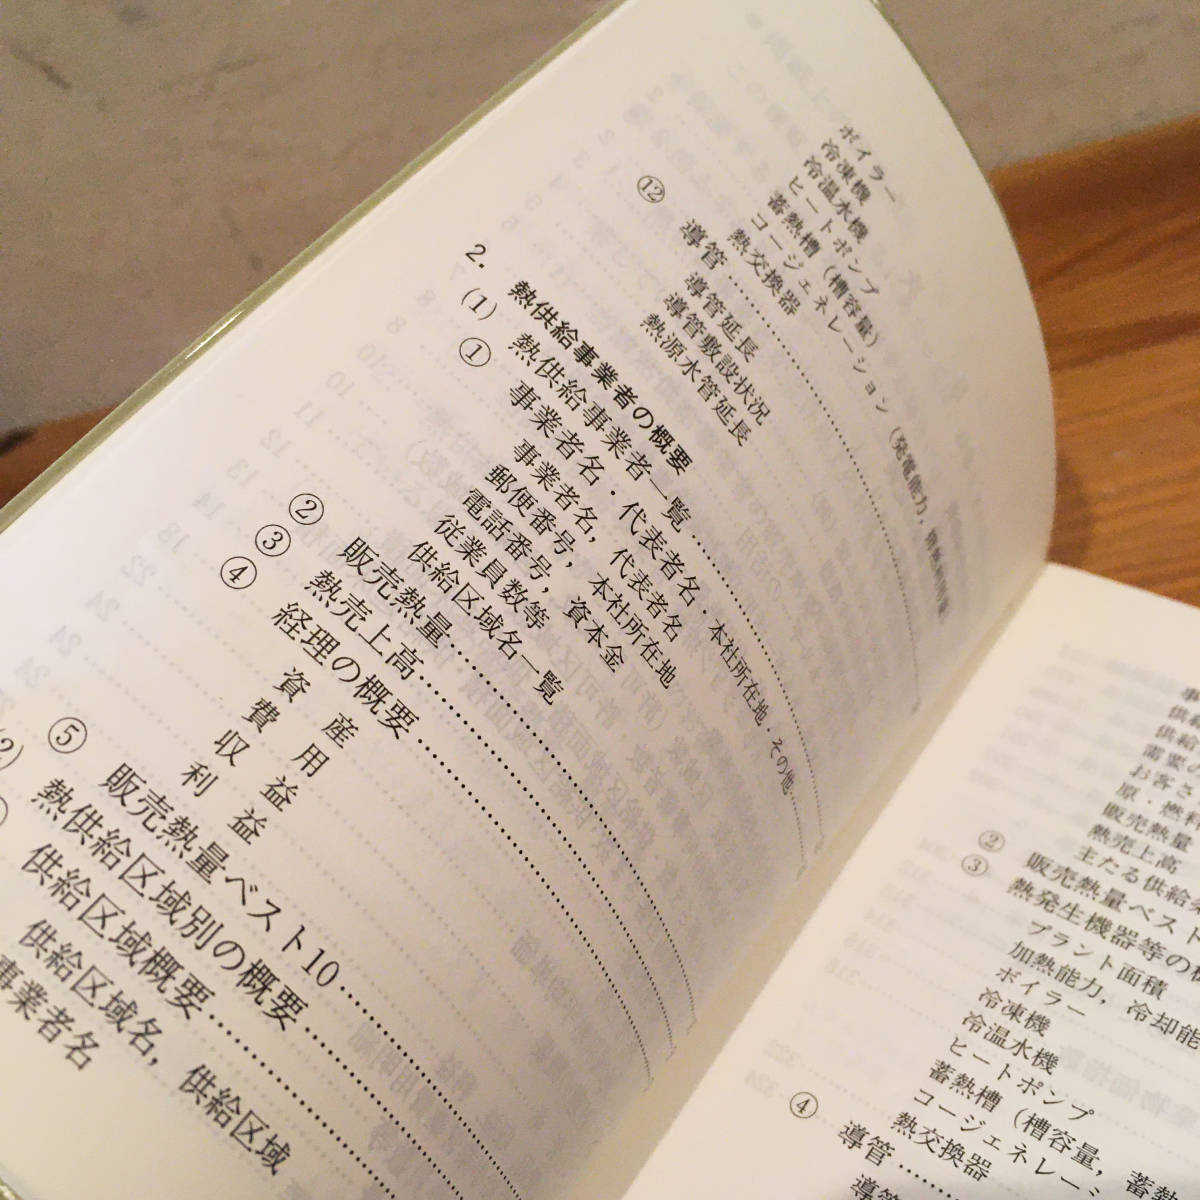 ボイラー
冷凍機
冷温水機
ヒートポンプ
蓄熱槽（槽容量）
コージェネレーション（発電能力，
熱交換器
⑫ 導管
導管延長
導管敷設状況
熱源水管延長
2. 熱供給事業者の概要
(1) 熱供給事業者一覧
① 事業者名・代表者名・本社所在地・その他
事業者名，代表者名
郵便番号，本社所在地
電話番号，資本金
従業員数等
供給区域名一覧
② 販売熱量
③ 熱売上高
④ 経理の概要
資産
費用
収益
利益
⑤ 販売熱量ベスト10
(2) 熱供給区域別の概要
供給区域概要
供給区域名，供給区域
事業者名
需要の
お客さ
原・燃料
販売熱量
熱売上高
主たる供給
② 販売熱量ベスト
③ 熱発生機器等の概
プラント面積
加熱能力，冷却能
ボイラー
冷凍機
冷温水機
ヒートポンプ
蓄熱槽（槽容量，蓄熱
コージェネレーシ
熱交換器
④ 導管
導管